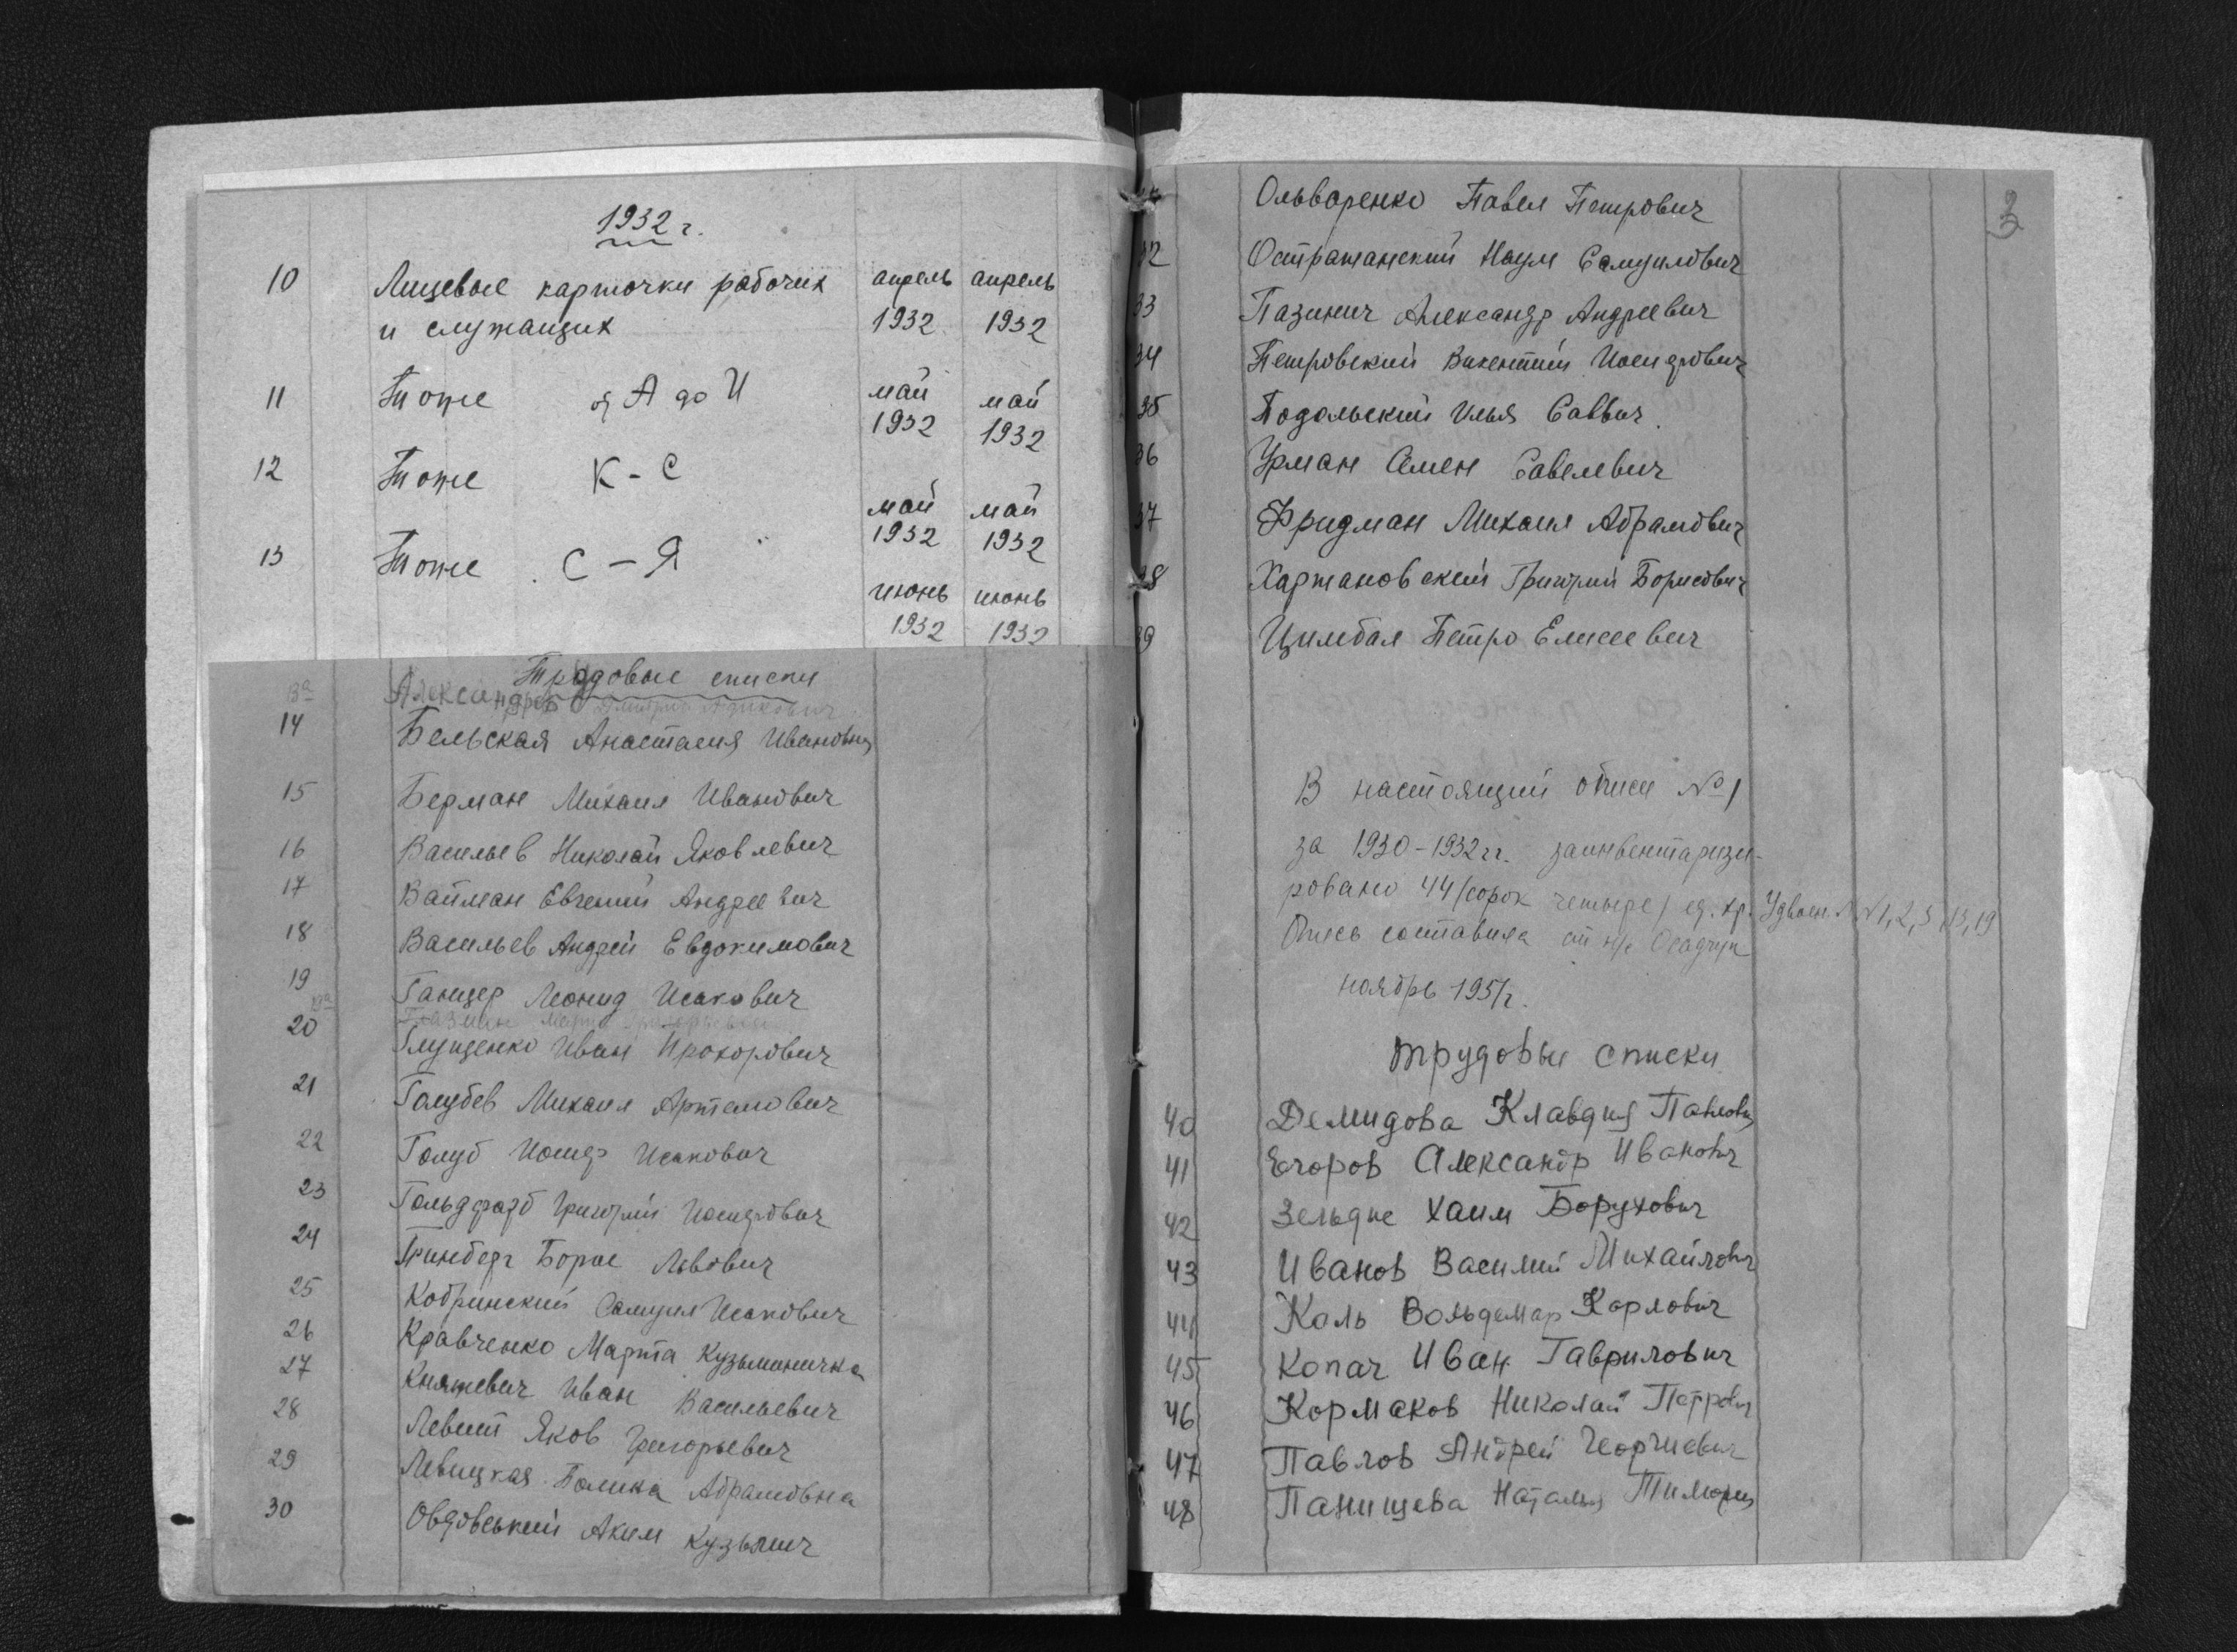 1932 г.
10 Лицевые карточки рабочих апрель апрель
и служащих 1932 1932
11 Тоже от А до И май май
1932 1932
12 Тоже К - С май май
1932 1932
13 Тоже С - Я июнь июнь
1932 1932
Трудовые списки
13а Александров Дмитрий
14 Бельская Анастасия Ивановна
15 Берман Михаил Иванович
16 Васильев Николай Яковлевич
17 Вайман Евгений Андреевич
18 Васильев Андрей Евдокимович
19 Ганцер Леонид Исакович
19а
20 Глущенко Иван Прохорович
21 Голубев Михаил Артемович
22 Голуб Иосиф Исакович
23 Гольдфарб Григорий Иосифович
24 Гринберг Борис Львович
25 Кобринский Самуил Исакович
26 Кравченко Марта Кузьминична
27 Княжевич Иван Васильевич
28 Левит Яков Григорьевич
29 Левицкая Полина Абрамовна
30 Овдовський Аким Кузьмич
3
Ольваренко Павел Петрович
32 Остражанский Наум Самуилович
33 Пазинич Александр Андреевич
34 Петровский Викентий Иосифович
35 Подольский Илья Саввич.
36 Урман Семен Савелевич
37 Фридман Михаил Абрамович
38 Харжановский Григорий Борисович
39 Цимбал Петро Елисеевич
В настоящий описи №1
за 1930-1932 гг. заинвентаризи-
ровано 44 (сорок четыре) ед. хр. Удвоен. №№ 1, 2, 3, 13, 19
Опись составила ст н/с Осадчук
ноябрь 1951 г.
Трудовые списки
40 Демидова Клавдия Павловна
41 Егоров Александр Иванович
42 Зельдис Хаим Борухович
43 Иванов Василий Михайлович
44 Каль Вольдемар Карлович
45 Копач Иван Гаврилович
46 Кормаков Николай Петрович
47 Павлов Андрей Георгиевич
48 Панищева Наталья